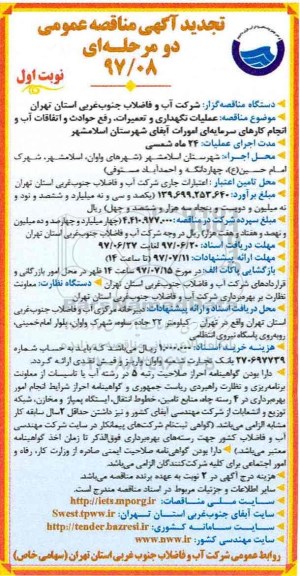 تجدید آگهی مناقصه عمومی
دو مرحله‌ای
۹۷/۰۸
نوبت اول
دستگاه مناقصه‌گزار: شرکت آب و فاضلاب جنوب‌غربی استان تهران
موضوع مناقصه: عملیات نگهداری و تعمیرات، رفع حوادث و اتفاقات آب و
انجام کارهای سرمایه‌ای امورات آبفای شهرستان اسلامشهر
مدت اجرای عملیات: ۲۴ ماه شمسی
محل اجرا: شهرستان اسلامشهر (شهرهای واوان، اسلامشهر، شهرک
امام حسین(ع)، چهاردانگه و احمدآباد مستوفی)
محل تامین اعتبار: اعتبارات جاری شرکت آب و فاضلاب جنوب‌غربی استان تهران
مبلغ برآورد: ۱۳۹,۶۹۹,۲۵۳,۶۴۰ (یکصد و سی و نه میلیارد و ششصد و نود و
نه میلیون و دویست و پنجاه سه هزار و ششصد و چهل) ریال
مبلغ سپرده شرکت در مناقصه: ۴,۴۱۰,۹۷۷,۰۰۰ (چهار میلیارد و چهارصد و ده میلیون
و نهصد و هفتاد و هفت هزار) ریال در وجه شرکت آب و فاضلاب جنوب‌غربی استان تهران
مهلت دریافت اسناد: ۹۷/۰۶/۲۰ لغایت ۹۷/۰۶/۲۷
مهلت ارائه پیشنهادات: ۹۷/۰۷/۱۱ (تا ساعت ۱۴)
بازگشایی پاکات الف: در مورخ ۹۷/۰۷/۱۵ ساعت ۱۴ ظهر در محل امور بازرگانی و
قراردادهای شرکت آب و فاضلاب جنوب‌غربی استان تهران دستگاه نظارت: معاونت
نظارت بر بهره‌برداری شرکت آب و فاضلاب جنوب‌غربی استان تهران
محل دریافت اسناد و ارائه پیشنهادات: دبیرخانه مرکزی آب و فاضلاب جنوب‌غربی
استان تهران واقع در تهران - کیلومتر ۲۲ جاده ساوه، شهرک واوان، بلوار امام‌خمینی،
روبه‌روی پاسگاه نیروی انتظامی
هزینه خرید اسناد: ۱,۰۰۰,۰۰۰ ریال می‌باشد که باید به حساب شماره
۲۷۰۶۹۷۷۳۹ بانک تجارت شعبه واوان واریز و فیش نقدی ارائه گردد.
دارا بودن گواهینامه احراز صلاحیت رتبه ۵ در رشته آب یا تاسیسات از معاونت
برنامه‌ریزی و نظارت راهبردی ریاست جمهوری و گواهینامه احراز شرایط انجام امور
بهره‌برداری در ۴ رسته چاه، منابع تامین، خطوط انتقال، ایستگاه پمپاژ و مخازن، شبکه
توزیع و انشعابات از شرکت مهندسی آبفای کشور و نیز داشتن حداقل ۲سال سابقه کار
مشابه الزامی می‌باشد. (گواهی ثبت‌نام شرکت‌های پیمانکار در سایت شرکت مهندسی
آب و فاضلاب کشور جهت رسته‌های بهره‌برداری فوق‌الذکر تا زمان اخذ گواهینامه
معتبر می‌باشد.) دارا بودن گواهی‌نامه صلاحیت ایمنی صادره از وزارت کار، رفاه و
امور اجتماعی برای کلیه شرکت‌کنندگان الزامی می‌باشد.
هزینه درج آگهی در ۲ نوبت به عهده برنده مناقصه می‌باشد.
سایر اطلاعات و جزئیات مربوط در اسناد مناقصه مندرج است.
سایت ملی مناقصات: http://iets.mporg.ir
سایت آبفای جنوب‌غربی استان تهران: Swest.tpww.ir
سایت سامانه کشوری: http://tender.bazresi.ir
سایت مهندسی کشور: www.nww.ir
روابط عمومی شرکت آب و فاضلاب جنوب غربی استان تهران (سهامی خاص)